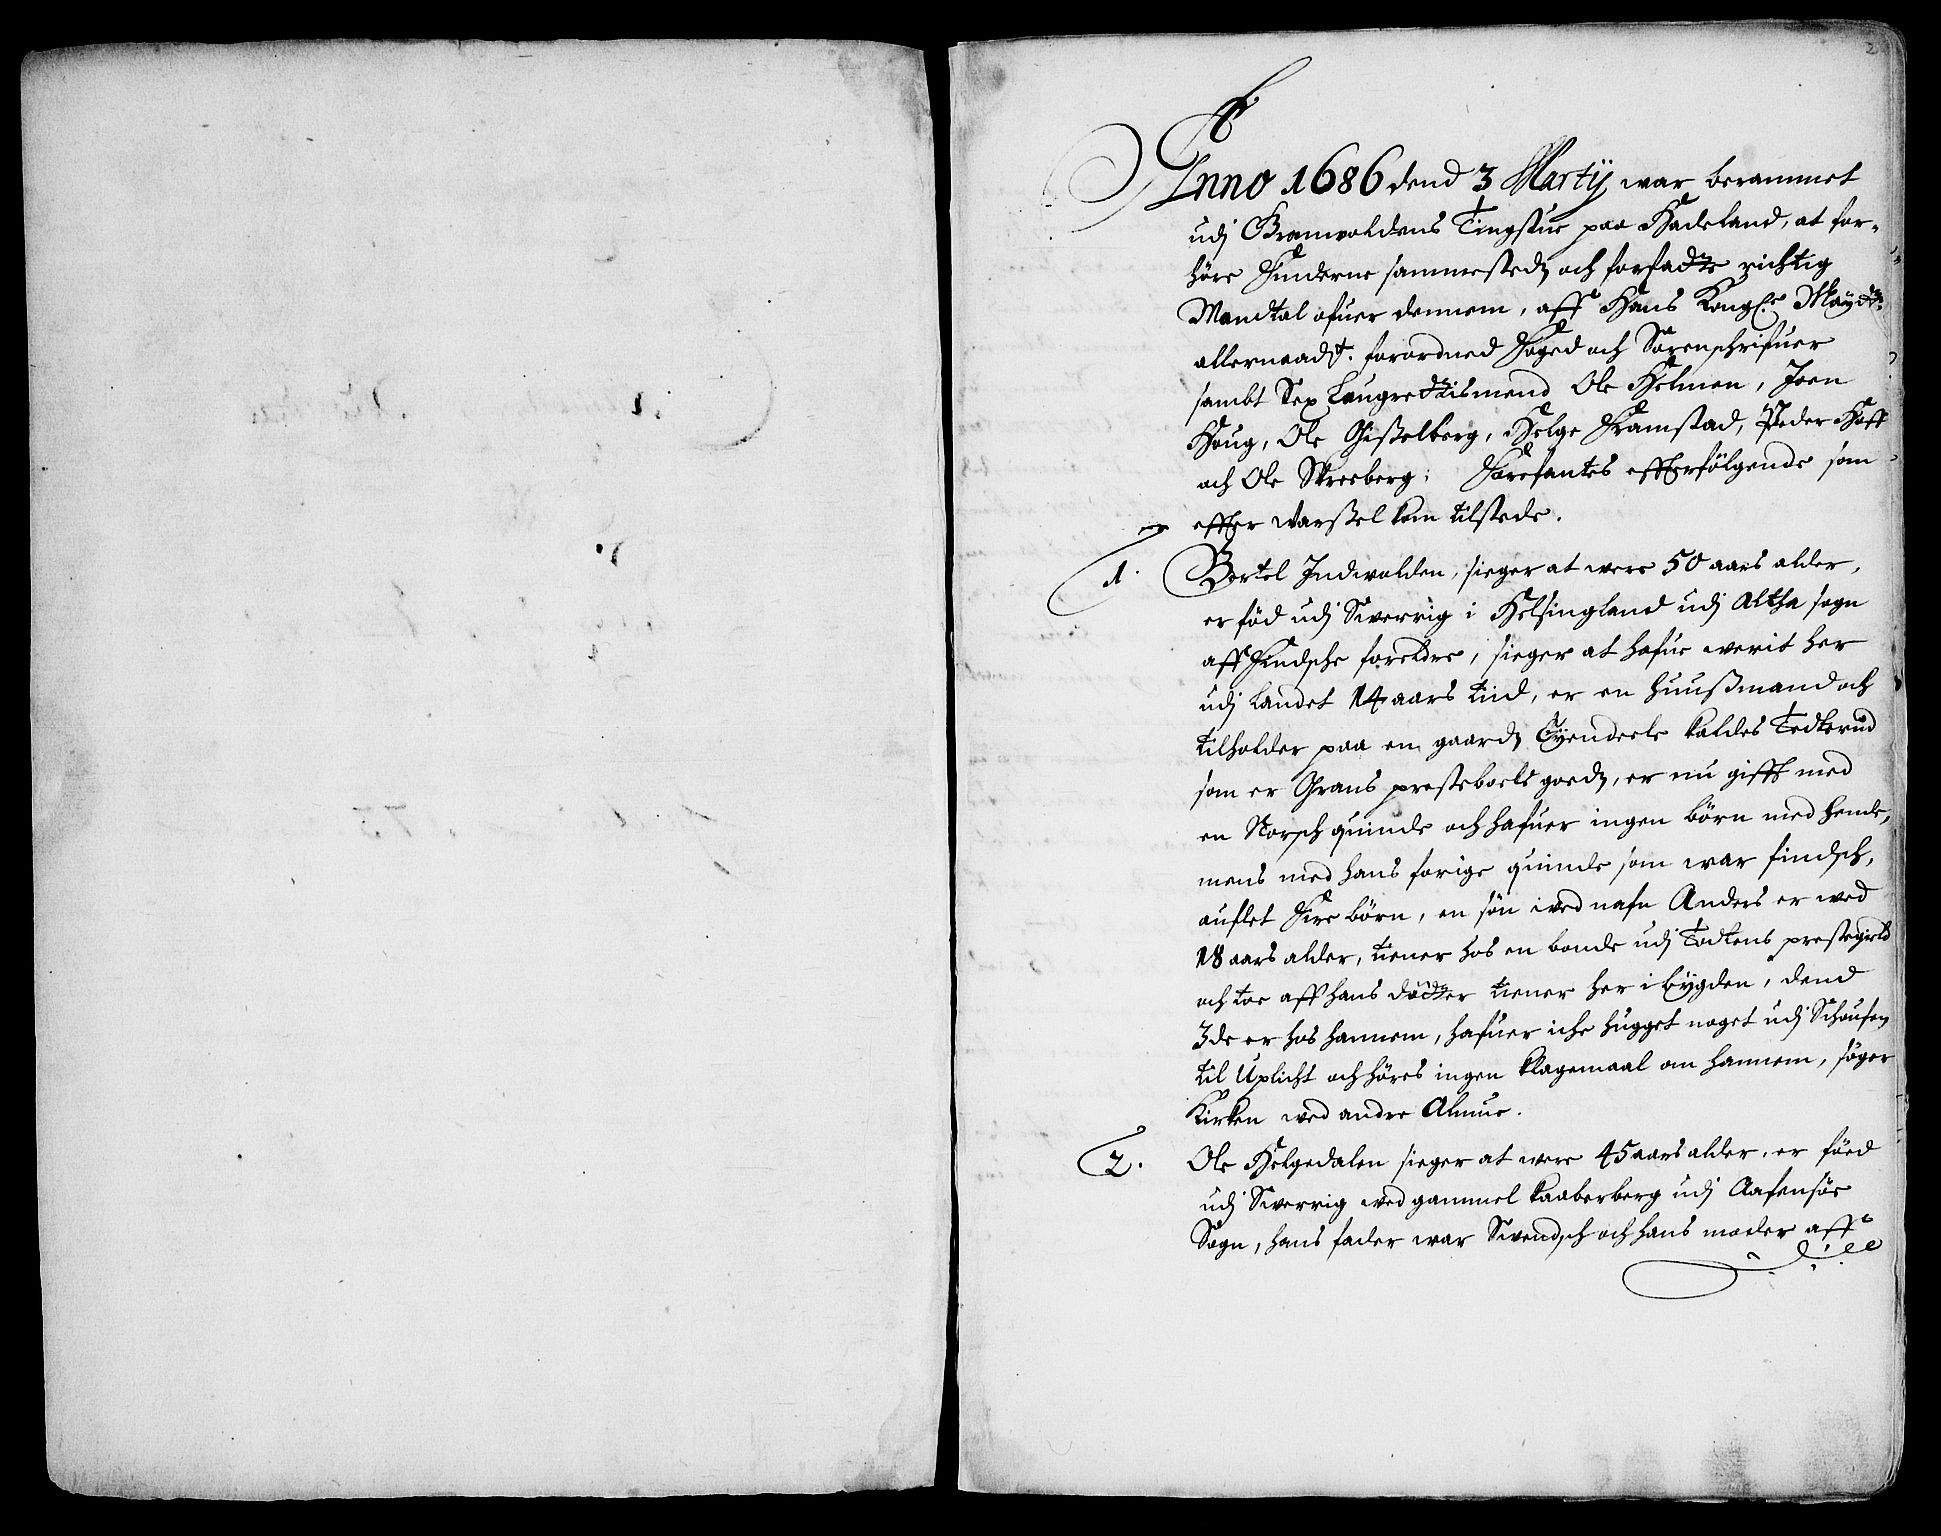 2
Anno 1686 dend 3 Martij war berammet
udj Granvoldens Tingstue paa Hadeland, at for-
höre Finderne sammestedz och forfadte richtig
Mandtal ofuer dennem, aff Hans Kongl: Maÿdtz
allernaadst. forordned Foged och Sorenschrifuer
sambt Sex Laugrettismend Ole Helmen, Joen
Houg, Ole Gisselberg, Helge Framstad, Peder Hoff
och Ole Skreeberg; Forefantes effterfölgende som
effter Warssel kom tilstede.
1. Bertel Indwolden, sieger at were 50 aars alder,
er föd udj Swerrig i Helsingland udj Altha sogn
aff Findsche foreldre, sieger at hafue werit her
udj landet 14 aars tiid, er en huussmand och
tilholder paa en gaardz Eÿendeele kaldes Tedterud
som er Grans prestebools goedz, er nu gifft med
en Norsch quinde och hafuer ingen börn med hende,
mens med hans forige quinde som war findsch,
auflet Fire börn, en sön wed nafn Anders er wed
18 aars alder, tiener hos en bonde udj Todtens prestegield
och toe aff hans dödtter tiener her i bÿgden, dend
3de er hos hannem, hafuer iche hugget noget udj Schoufen
til Uplicht och höres ingen klagemaal om hannem, söger
Kirken wed andre Almue.
2. Ole Helgedalen sieger at were 45 aars alder, er föed
udj Swerrig wed gammel kaaberberg udj Aafensöe
Sogn, hans fader war Swendsch och hans moder aff